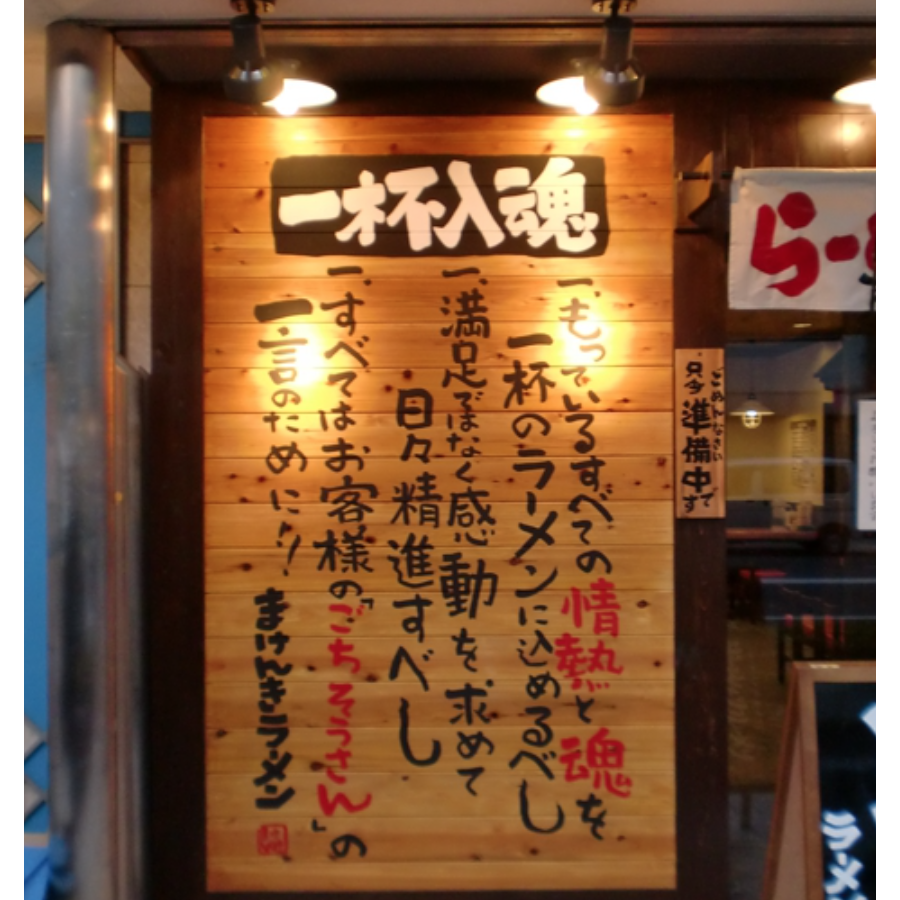 一杯入魂
一、もっているすべての情熱と魂を
一杯のラーメンに込めるべし
一、満足ではなく感動を求めて
日々精進すべし
一、すべてはお客様の「ごちそうさん」の
一言のために!!
まけんきラーメン
ごめんなさい
只今準備中です
らー
ラーメ